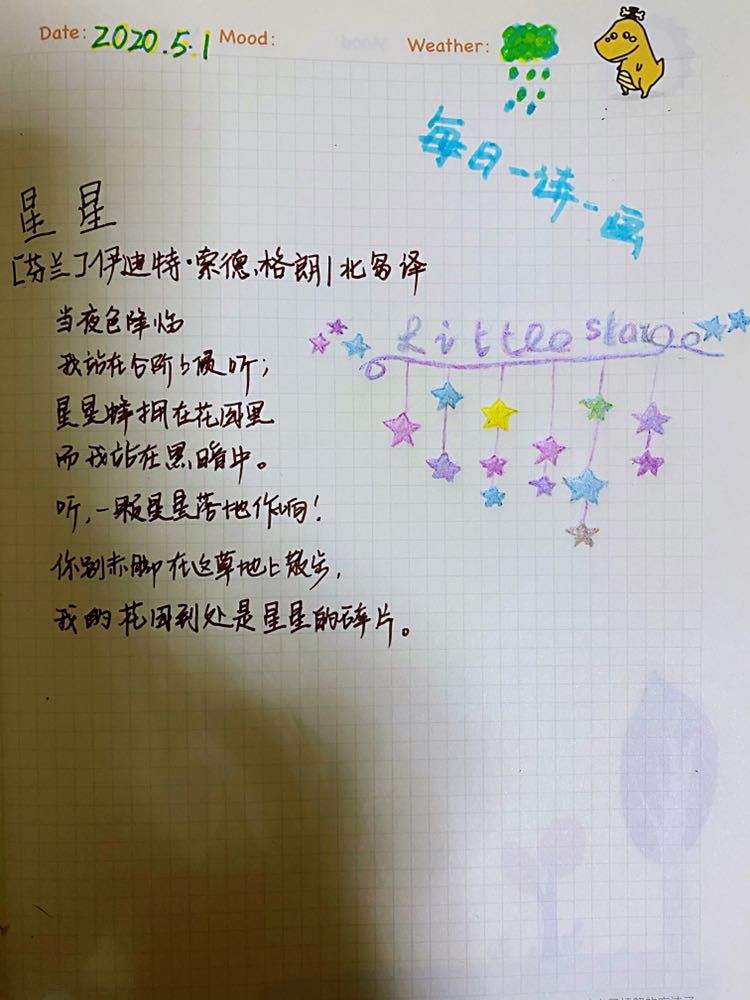 Date: 2020.5.1 Mood: Weather:
每日一诗一画
星星
[芬兰]伊迪特·索德格朗|北岛译
当夜色降临
我站在台阶上倾听;
星星蜂拥在花园里
而我站在黑暗中。
听,一颗星星落地作响!
你别赤脚在这草地上散步,
我的花园到处是星星的碎片。
Little stars